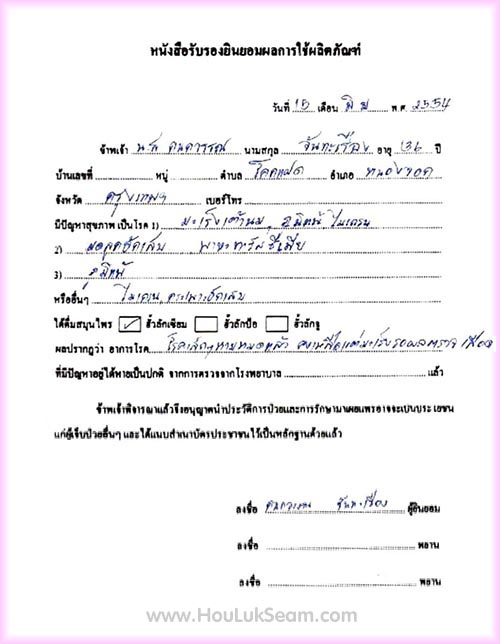 หนังสือรับรองยินยอมผลการใช้ผลิตภัณฑ์
วันที่ 15 เดือน มิย พ.ศ. 2554
ข้าพเจ้า น.ส. นามสกุล จันทะเรือง อายุ 36 ปี
บ้านเลขที่ หมู่ ตำบล โคกแฝด อำเภอ หนองจอก
จังหวัด กรุงเทพฯ เบอร์โทร
มีปัญหาสุขภาพ เป็นโรค 1) มะเร็งเต้านม, ภูมิแพ้ ไมเกรน
2) มดลูกอักเสบ พาหะทาลัสซีเมีย
3) ภูมิแพ้
หรืออื่นๆ ไมเกรน, กระเพาะอักเสบ
ได้ดื่มสมุนไพร ✓ ฮั้วลักเซียม ฮั้วลักป้อ ฮั้วลักฐู
ผลปรากฏว่า อาการโรค โรคเล็กๆ หายหมดแล้ว คงเหลือแต่มะเร็งรอผลตรวจ
ที่มีปัญหาอยู่ได้หายเป็นปกติ จากการตรวจจากโรงพยาบาล แล้ว
ข้าพเจ้าพิจารณาแล้วจึงอนุญาตนำประวัติการป่วยและการรักษามาเผยแพร่อาจจะเป็นประโยชน์
แก่ผู้เจ็บป่วยอื่นๆ และได้แนบสำเนาบัตรประชาชนไว้เป็นหลักฐานด้วยแล้ว
ลงชื่อ จันทะเรือง ผู้ยินยอม
ลงชื่อ พยาน
ลงชื่อ พยาน
www.HouLukSeam.com